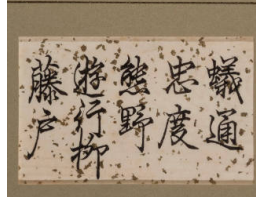 蟻通
忠度
熊野
遊行柳
藤戸